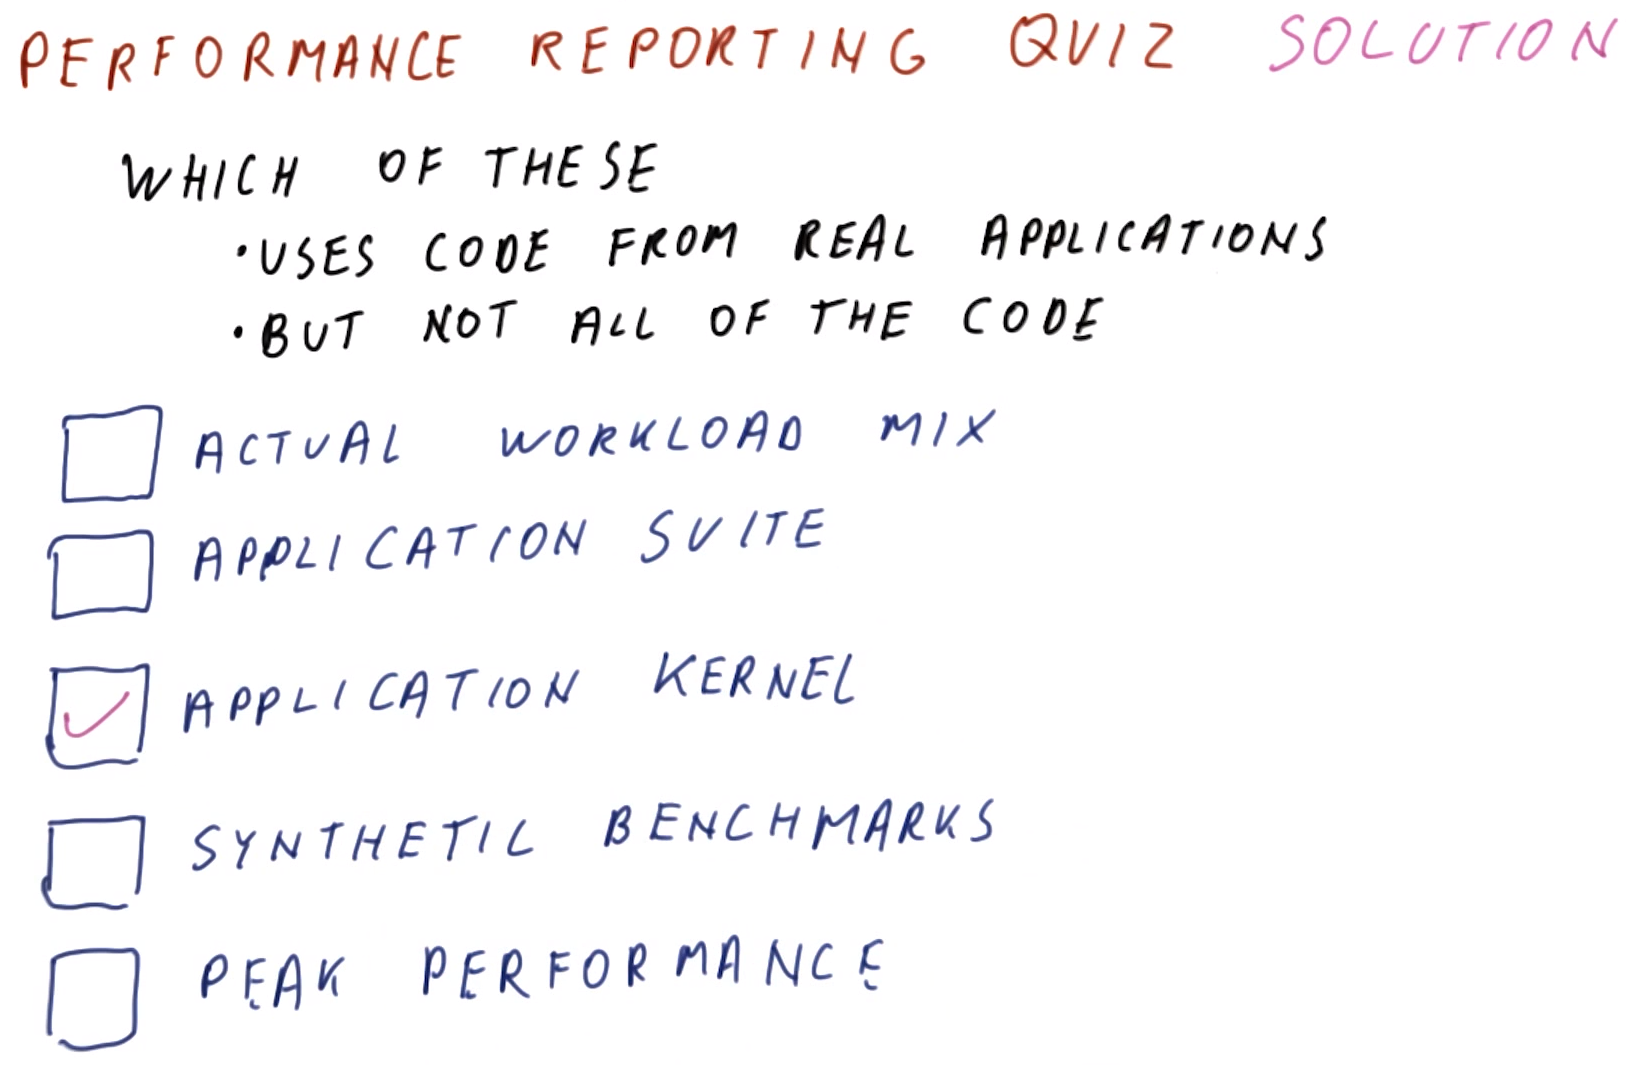 PERFORMANCE REPORTING QUIZ SOLUTION
WHICH OF THESE
•USES CODE FROM REAL APPLICATIONS
•BUT NOT ALL OF THE CODE
ACTUAL WORKLOAD MIX
APPLICATION SUITE
APPLICATION KERNEL
SYNTHETIC BENCHMARKS
PEAK PERFORMANCE